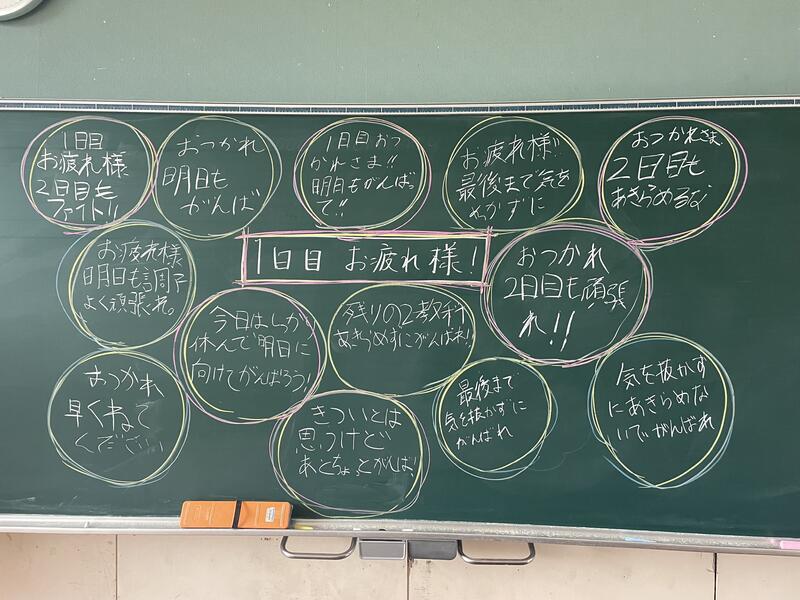 1日目
お疲れ様
2日目も
ファイト!!
おつかれ
明日も
がんば
1日目おつ
かれさま!!
明日もがんばっ
て!!
お疲れ様!!
最後まで気を
ぬかずに
おつかれさま
2日目も
あきらめるな
お疲れ様
明日も調子
よく頑張れ。
1日目 お疲れ様!
おつかれ
2日目も頑張
れ!!
今日はしっかり
休んで明日に
向けてがんばろう!
残りの2教科
あきらめずにがんばれ!!
おつかれ
早くねて
ください
きついとは
思うけど
あとちょっとがんば!
最後まで
気を抜かずに
がんばれ
気を抜かず
にあきらめな
いでがんばれ